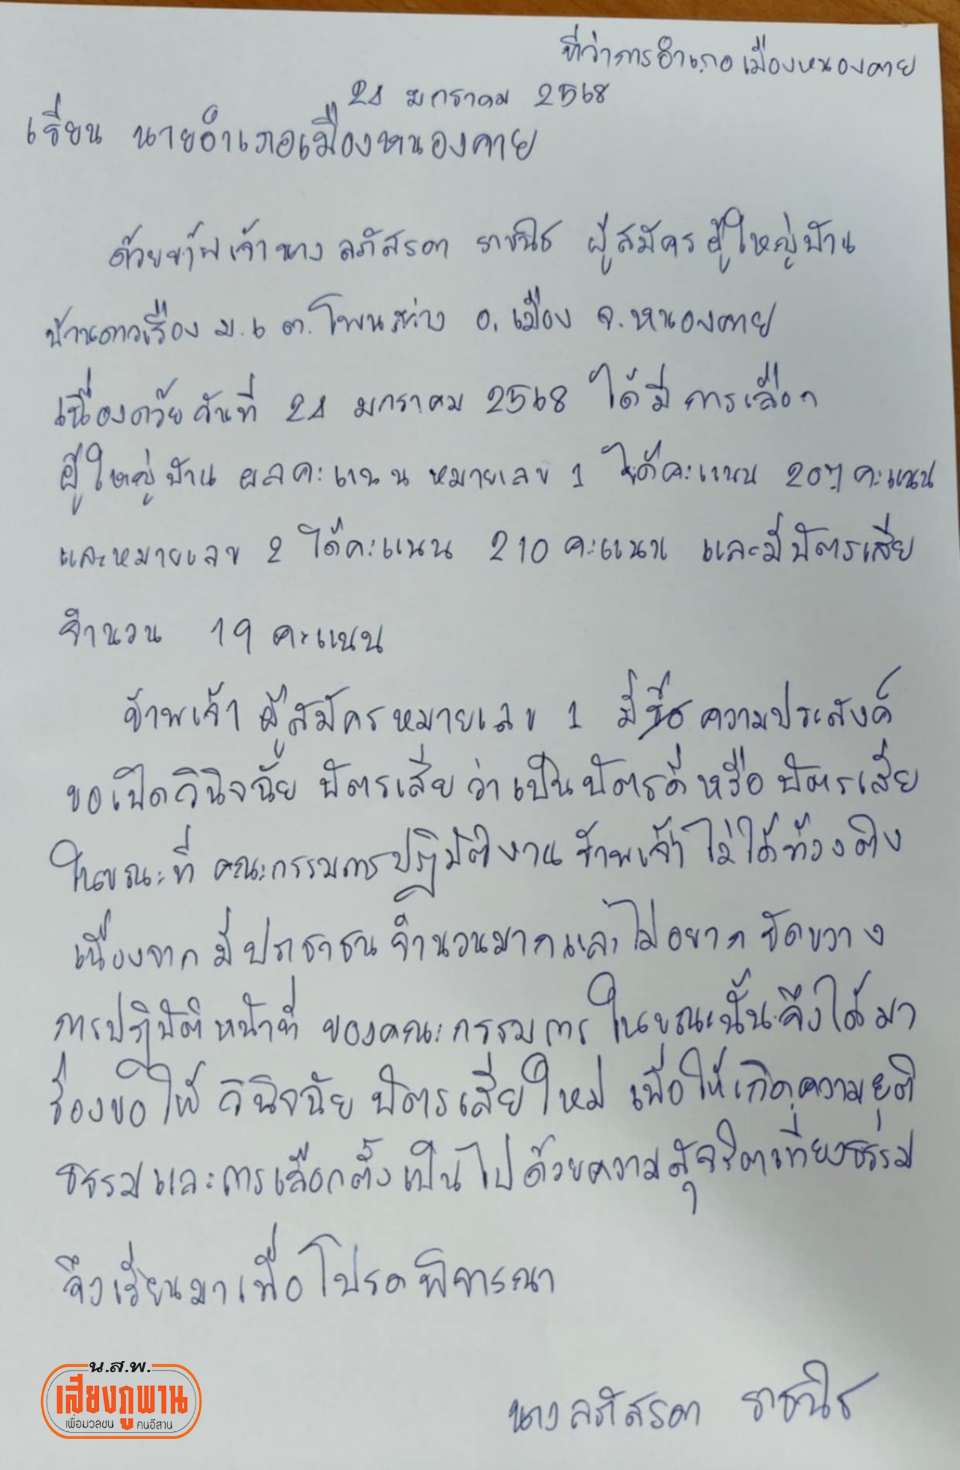 ที่ว่าการอำเภอเมืองหนองคาย
24 มกราคม 2568
เรียน นายอำเภอเมืองหนองคาย
ด้วยข้าพเจ้านาง ลภัสรดา ราชนิธ ผู้สมัครผู้ใหญ่บ้าน
บ้านดาวเรือง ม.6 ต.โพนสว่าง อ.เมือง จ.หนองคาย
เนื่องด้วยวันที่ 24 มกราคม 2568 ได้มีการเลือก
ผู้ใหญ่บ้าน ผลคะแนน หมายเลข 1 ได้คะแนน 207 คะแนน
และหมายเลข 2 ได้คะแนน 210 คะแนน และมีบัตรเสีย
จำนวน 19 คะแนน
ข้าพเจ้า ผู้สมัครหมายเลข 1 มี ความประสงค์
ขอเปิดวินิจฉัย บัตรเสียว่าเป็นบัตรดีหรือบัตรเสีย
ในขณะที่ คณะกรรมการปฏิบัติงาน ข้าพเจ้าไม่ได้ท้วงติง
เนื่องจากมีประชาชนจำนวนมากและไม่อยากขัดขวาง
การปฏิบัติหน้าที่ ของคณะกรรมการในขณะนั้นจึงได้มา
ร้องขอให้ วินิจฉัย บัตรเสียใหม่ เพื่อให้เกิดความยุติ
ธรรมและการเลือกตั้งเป็นไปด้วยความสุจริตเที่ยงธรรม
จึงเรียนมาเพื่อโปรดพิจารณา
นางลภัสรดา ราชนิธ
น.ส.พ.
เสียงภูพาน
เพื่อมวลชน คนอีสาน